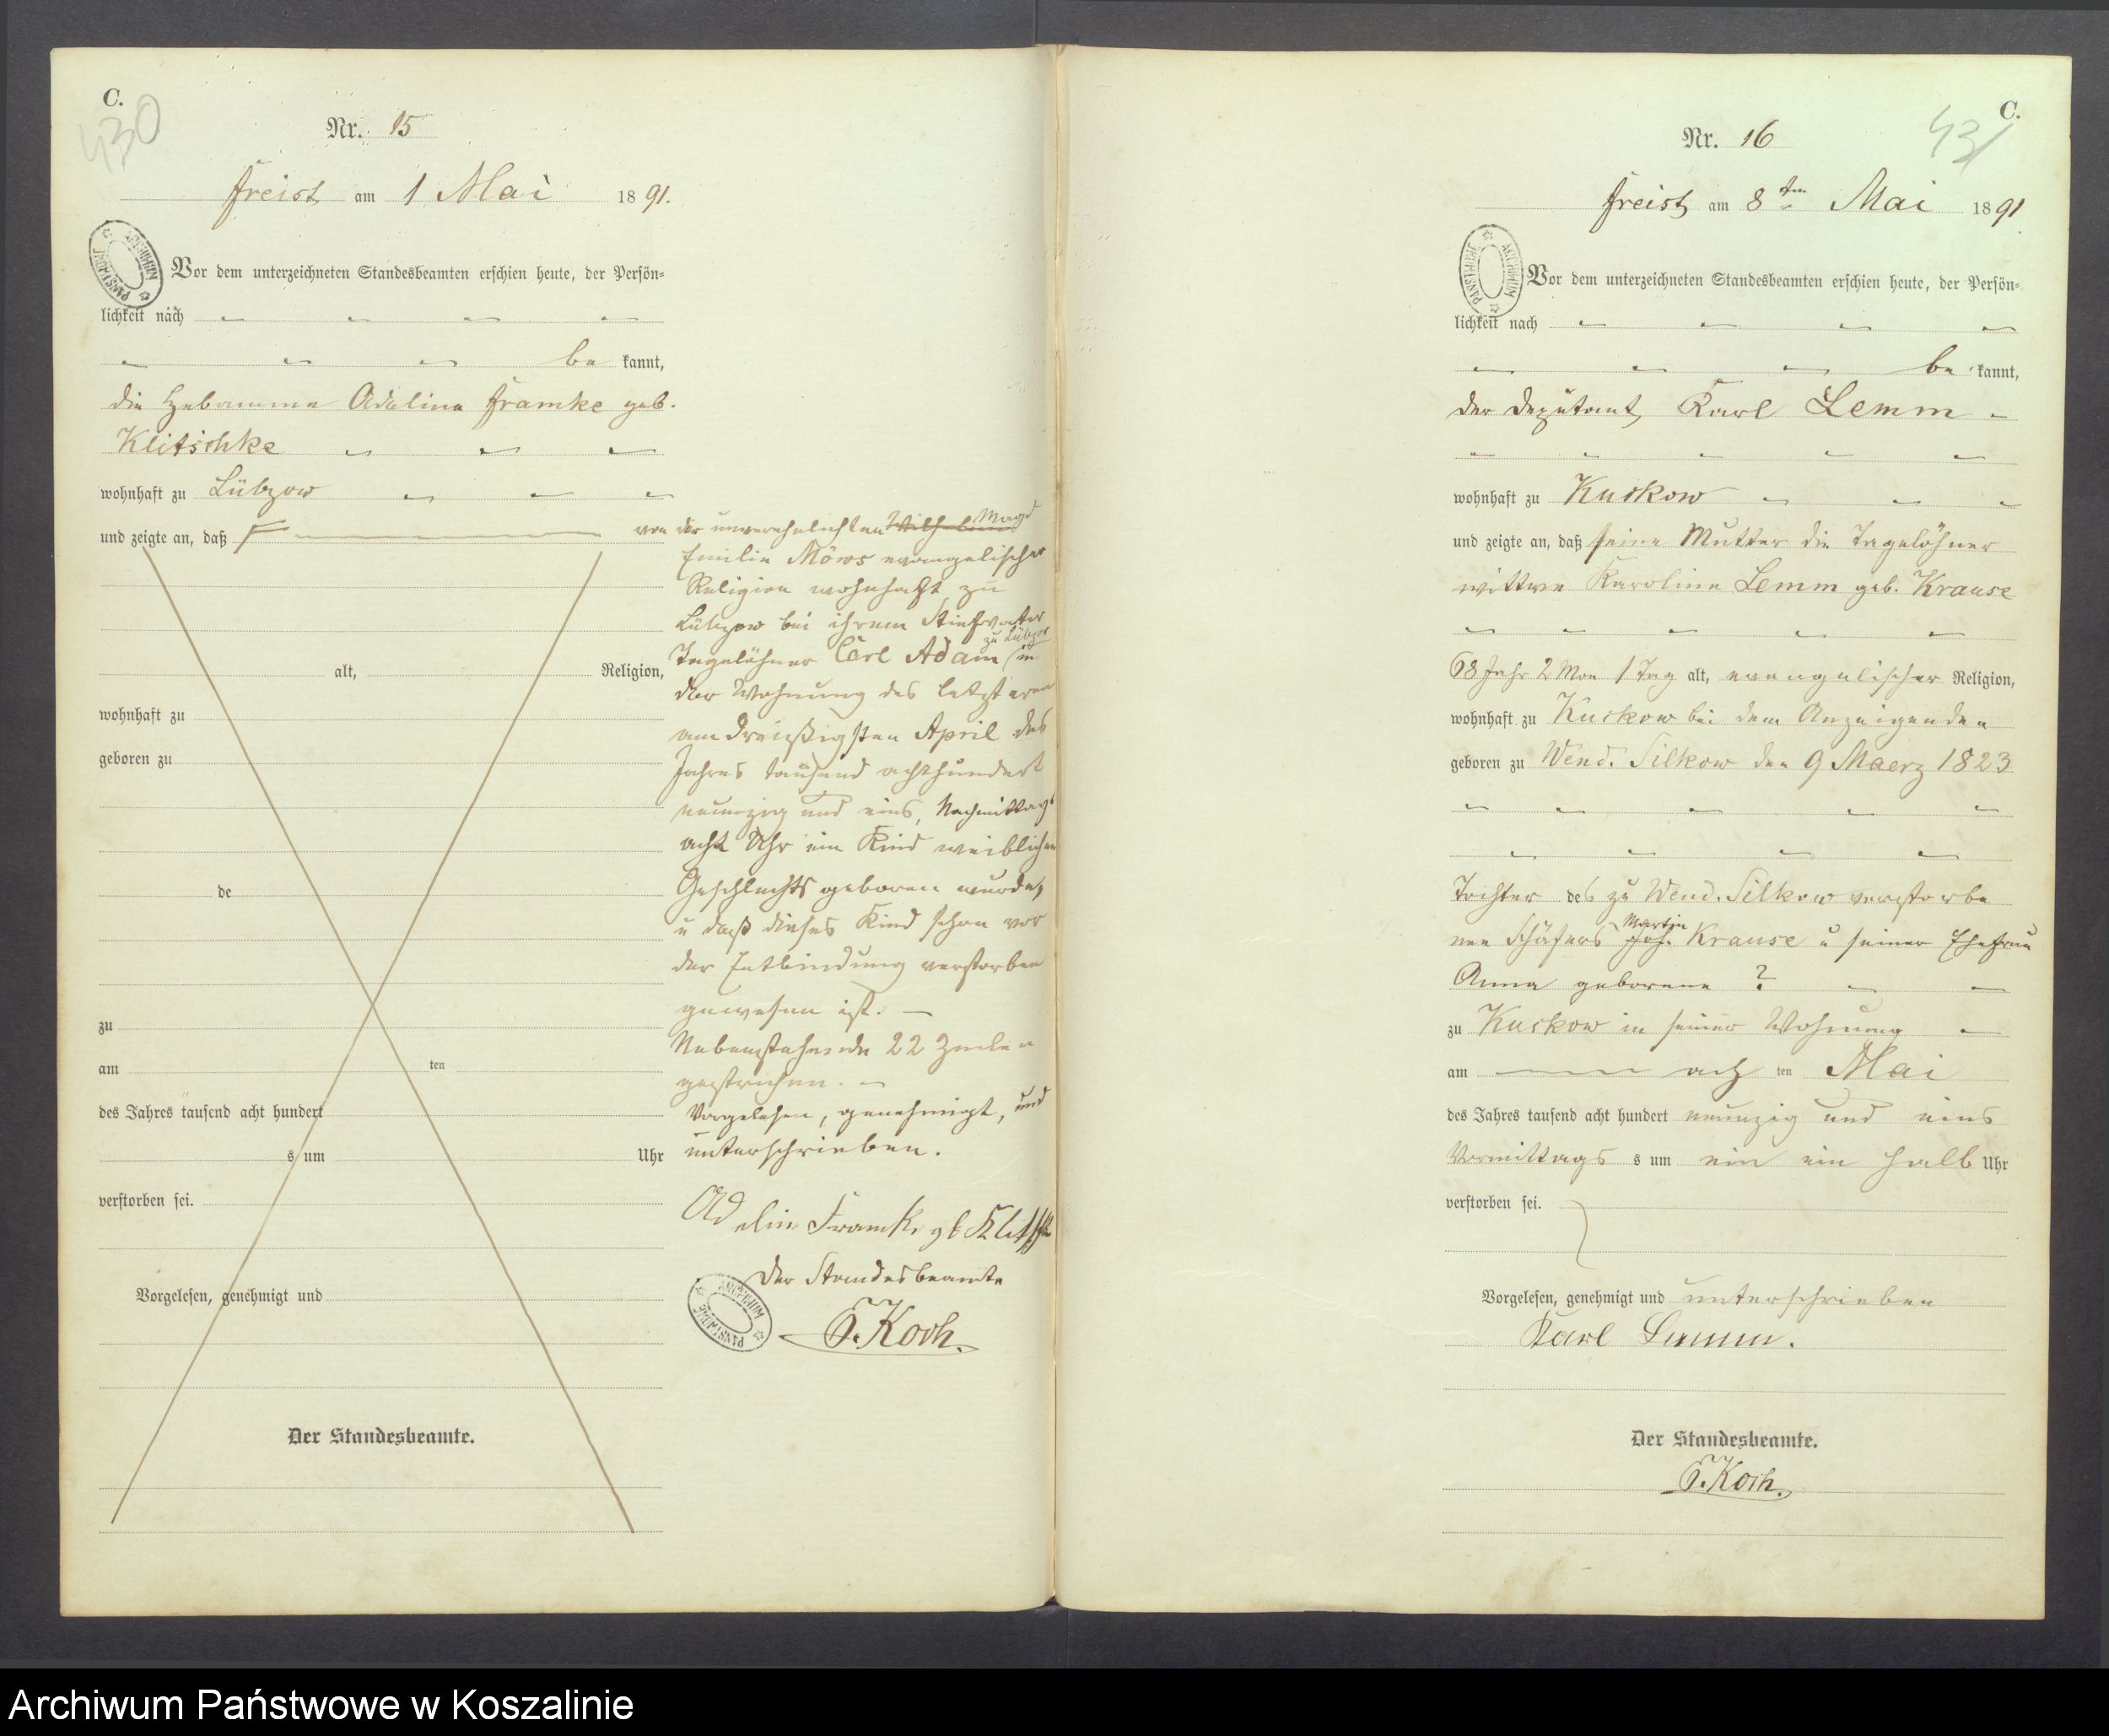 C.
430
Nr. 15
Freist am 1 Mai 1891.
Vor dem unterzeichneten Standesbeamten erschien heute, der Persön-
lichkeit nach
be kannt,
die Hebamme Adeline Framke geb.
Klitschke
wohnhaft zu Lübzow
und zeigte an, daß
alt, Religion,
wohnhaft zu
geboren zu
de
zu
am ten
des Jahres tausend acht hundert
s um Uhr
verstorben sei.
Vorgelesen, genehmigt und
Der Standesbeamte.
von der unverehelichten Wilhelmine Magd
Emilie Möws evangelischer
Religion wohnhaft zu
Lübzow bei ihrem Stiefvater
zu Lübzow
Tagelöhner Carl Adam in
der Wohnung des letzteren
am dreißigsten April des
Jahres tausend achthundert
neunzig und eins, Nachmittags
acht Uhr ein Kind weiblichen
Geschlechts geboren wurde,
u daß dieses Kind schon vor
der Entbindung verstorben
gewesen ist.
Nebenstehende 22 Zeilen
gestrichen.
Vorgelesen, genehmigt, und
unterschrieben.
Adelin Framke gb Klitschke
Der Standesbeamte
Koch.
ARCHIWUM PAŃSTWOWE
C.
431
Nr. 16
Freist am 8ten Mai 1891
Vor dem unterzeichneten Standesbeamten erschien heute, der Persön-
lichkeit nach
be kannt,
der Deputant Karl Lemm
wohnhaft zu Kuskow
und zeigte an, daß seine Mutter die Tagelöhner
wittwe Karoline Lemm geb. Krause
68 Jahr 2 Mon 1 Tag alt, evangelischer Religion,
wohnhaft zu Kuskow bei dem Anzeigenden
geboren zu Wend. Silkow den 9 Maerz 1823
Tochter des zu Wend. Silkow verstorbe
nen Schäfers Martin Joh. Krause u seiner Ehefrau
Anna geborene ?
zu Kuskow in seiner Wohnung
am acht ten Mai
des Jahres tausend acht hundert neunzig und eins
Vormittags s um ein ein halb Uhr
verstorben sei.
Vorgelesen, genehmigt und unterschrieben
Karl Lemm.
Der Standesbeamte.
Koch.
Archiwum Państwowe w Koszalinie